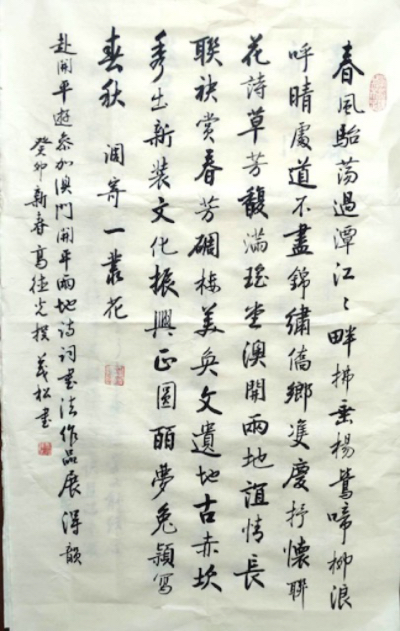 春風駘蕩過潭江々畔拂垂楊鶯啼柳浪
呼晴處道不盡錦繡僑鄉雙慶抒懷聯
花詩草芳馥滿瑤堂澳開兩地誼情長
聯袂賞春芳碉樓美奐文遺地古赤坎
秀出新裝文化振興正圓夢兔穎寫
春秋 調寄一叢花
赴開平遊參加澳門開平兩地詩詞書法作品展得韻
癸卯新春高光撰 義松書